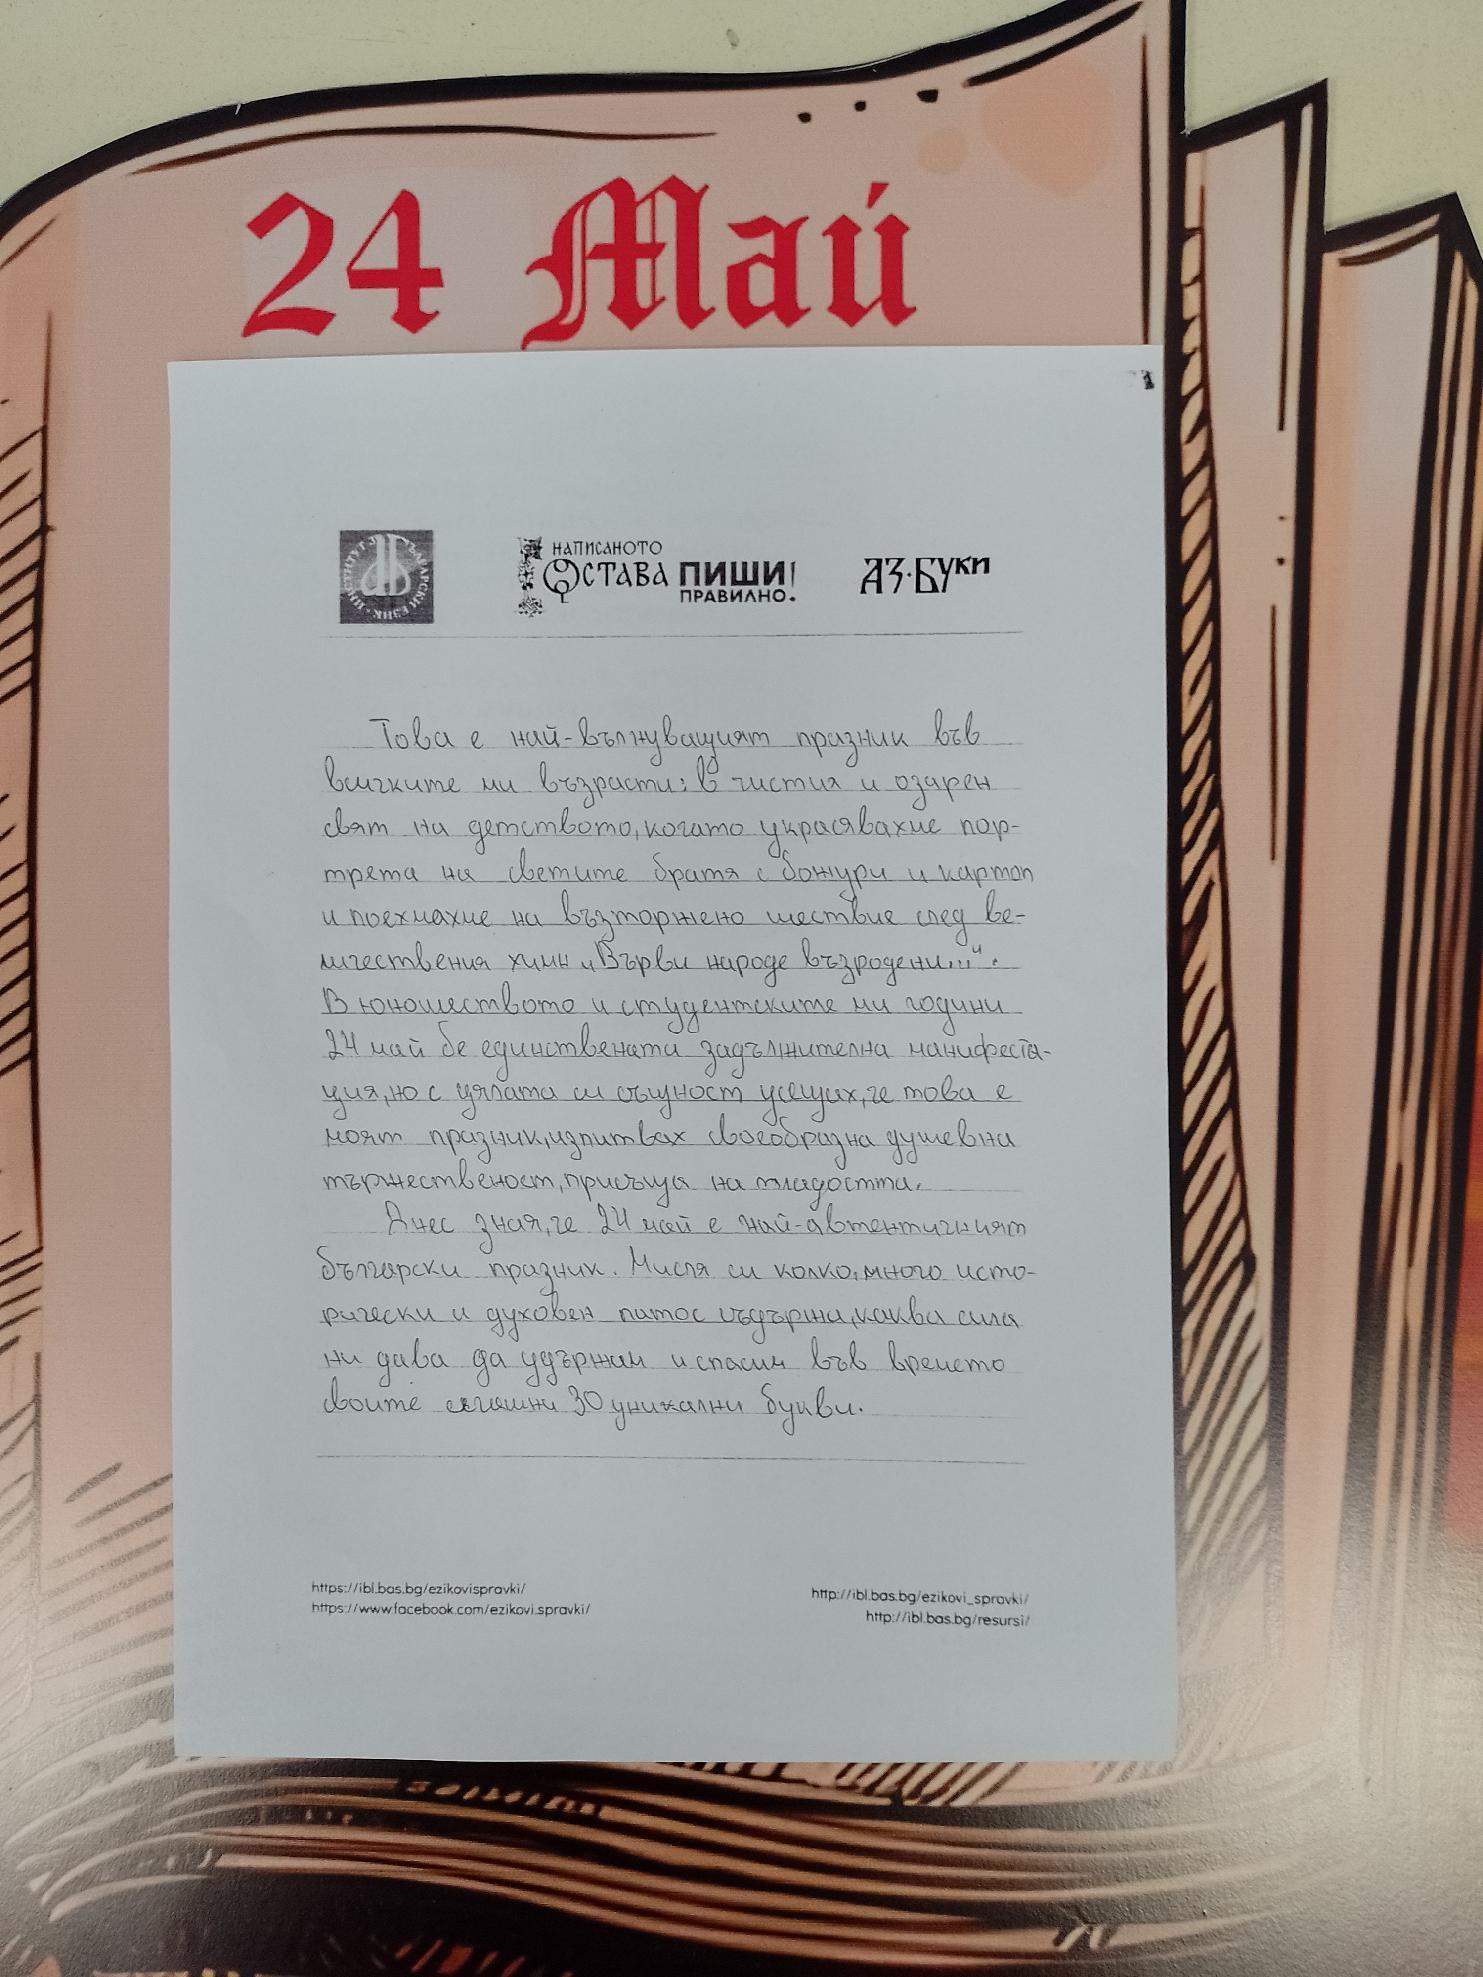 24 Май
ИНСТИТУТ ЗА БЪЛГАРСКИ ЕЗИК
НАПИСАНОТО
ОСТАВА ПИШИ
ПРАВИЛНО!
АЗ·БУКИ
Това е най-вълнуващият празник във
всичките ми възрасти: в чистия и озарен
свят на детството, когато украсявахме пор-
трета на светите братя с божури и картон
и поехмахме на възторжено шествие след ве-
личествения химн „Върви народе възродени...“.
В юношеството и студентските ми години
24 май бе единствената задължителна манифеста-
ция, но с цялата си същност усещах, че това е
моят празник, изпитвах своеобразна душевна
тържественост, присъща на младостта.
Днес зная, че 24 май е най-автентичният
български празник. Мисля си колко, много исто-
рически и духовен патос съдържа, каква сила
ни дава да удържим и спасим във времето
своите сегашни 30 уникални букви.
https://ibl.bas.bg/ezikovispravki/
https://www.facebook.com/ezikovi.spravki/
http://ibl.bas.bg/ezikovi_spravki/
http://ibl.bas.bg/resursi/